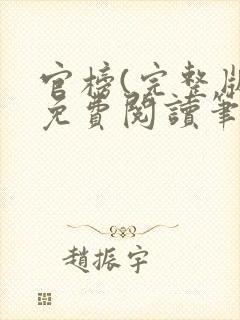 官榜(完整版
免費閱讀筆
趙振宇